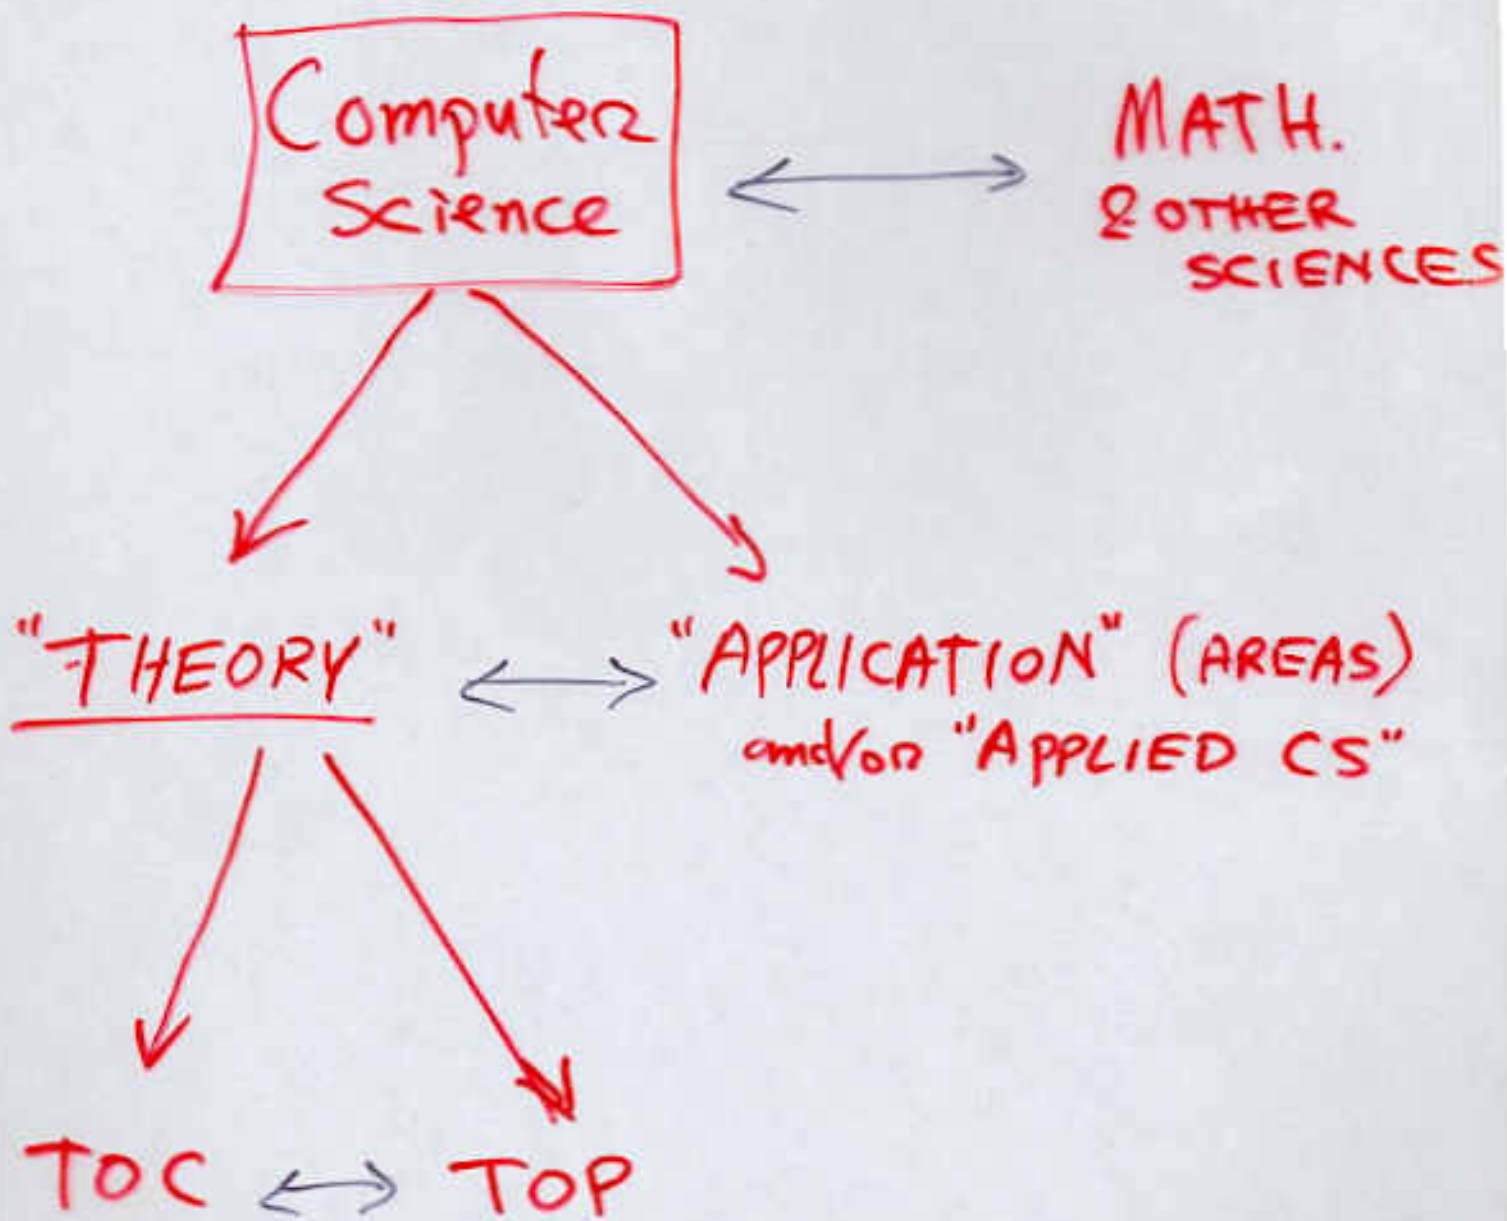 Computer
Science
MATH.
& OTHER
SCIENCES
"THEORY"
"APPLICATION" (AREAS)
and/or "APPLIED CS"
TOC
TOP